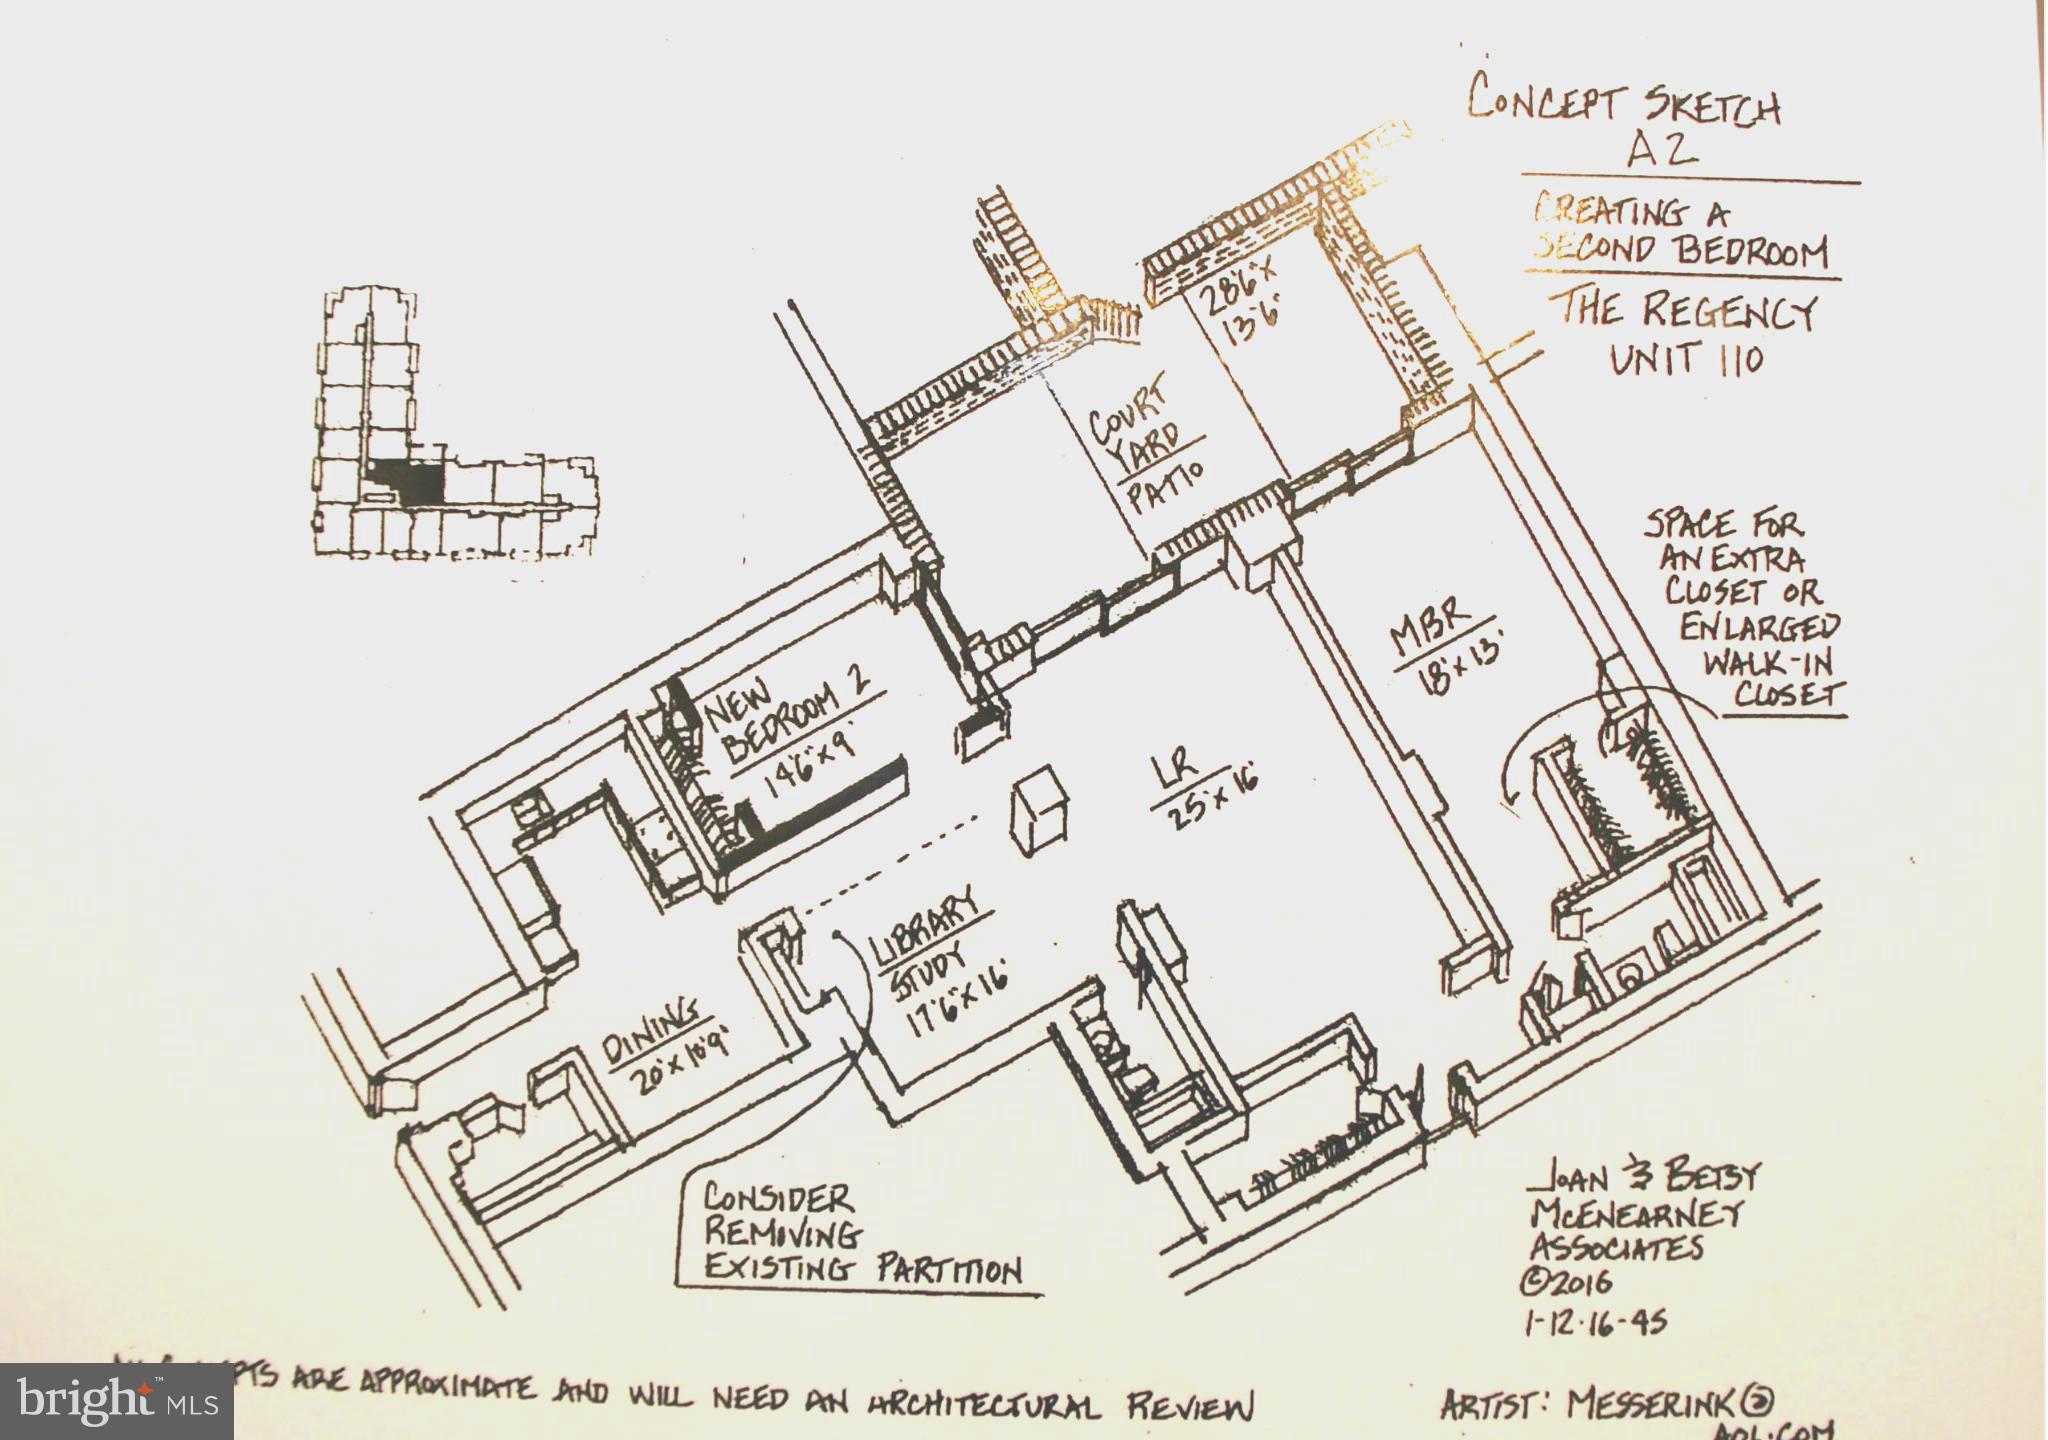 CONCEPT SKETCH
A2
CREATING A
SECOND BEDROOM
THE REGENCY
UNIT 110
28'6" x
13'6"
COURT
YARD
PATIO
SPACE FOR
AN EXTRA
CLOSET OR
ENLARGED
WALK-IN
CLOSET
MBR
18' x 13'
NEW
BEDROOM 2
14'6" x 9'
LR
25' x 16'
LIBRARY
STUDY
17'6" x 16'
DINING
20' x 10'9"
CONSIDER
REMOVING
EXISTING PARTITION
JOAN & BETSY
McENEARNEY
ASSOCIATES
©2016
1-12-16-45
ARE APPROXIMATE AND WILL NEED AN ARCHITECTURAL REVIEW
ARTIST: MESSERINK@
AOL.COM
bright™ MLS